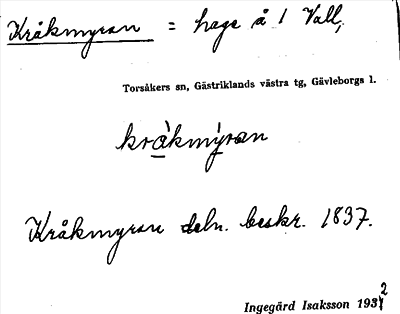 Kråkmyran = hage å 1 Vall,
Torsåkers sn, Gästriklands västra tg, Gävleborgs l.
kràkmýran
Kråkmyran deln. beskr. 1837.
Ingegärd Isaksson 1932